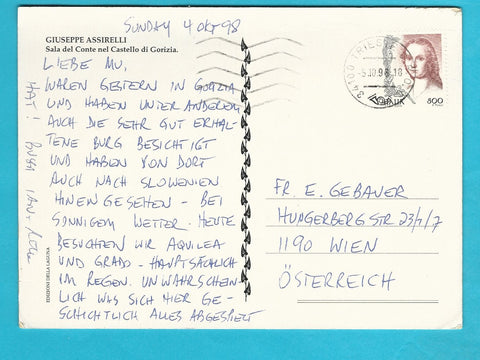 SUNDAY 4 OKT 98
GIUSEPPE ASSIRELLI
Sala del Conte nel Castello di Gorizia.
LIEBE MU,
WAREN GESTERN IN GORIZIA
UND HABEN UNTER ANDEREM
AUCH DIE SEHR GUT ERHAL-
TENE BURG BESICHTIGT
UND HABEN VON DORT
AUCH NACH SLOWENIEN
HINEN GESEHEN - BEI
SONNIGEM WETTER. HEUTE
BESUCHTEN WIR AQUILEA
UND GRADO - HAUPTSÄCHLICH
IM REGEN. UNWAHRSCHEIN-
LICH WAS SICH HIER GE-
SCHICHTLICH ALLES ABGESPIELT
HAT!
EDIZIONI DELLA LAGUNA
34100 TRIESTE
-5.10.98.18
800
FR. E. GEBAUER
HUNGERBERG STR 23/1/7
1190 WIEN
ÖSTERREICH